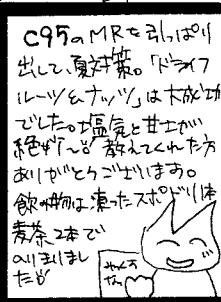 C95のMRを引っぱり
出して、夏対策。「ドライフ
ルーツ&ナッツ」は大成功
でした。塩気と甘さが
絶妙〜♂教えてくれた方
ありがとうございます。
飲み物は凍ったスポドリ1本
麦茶2本で
のりきりまし
た♂